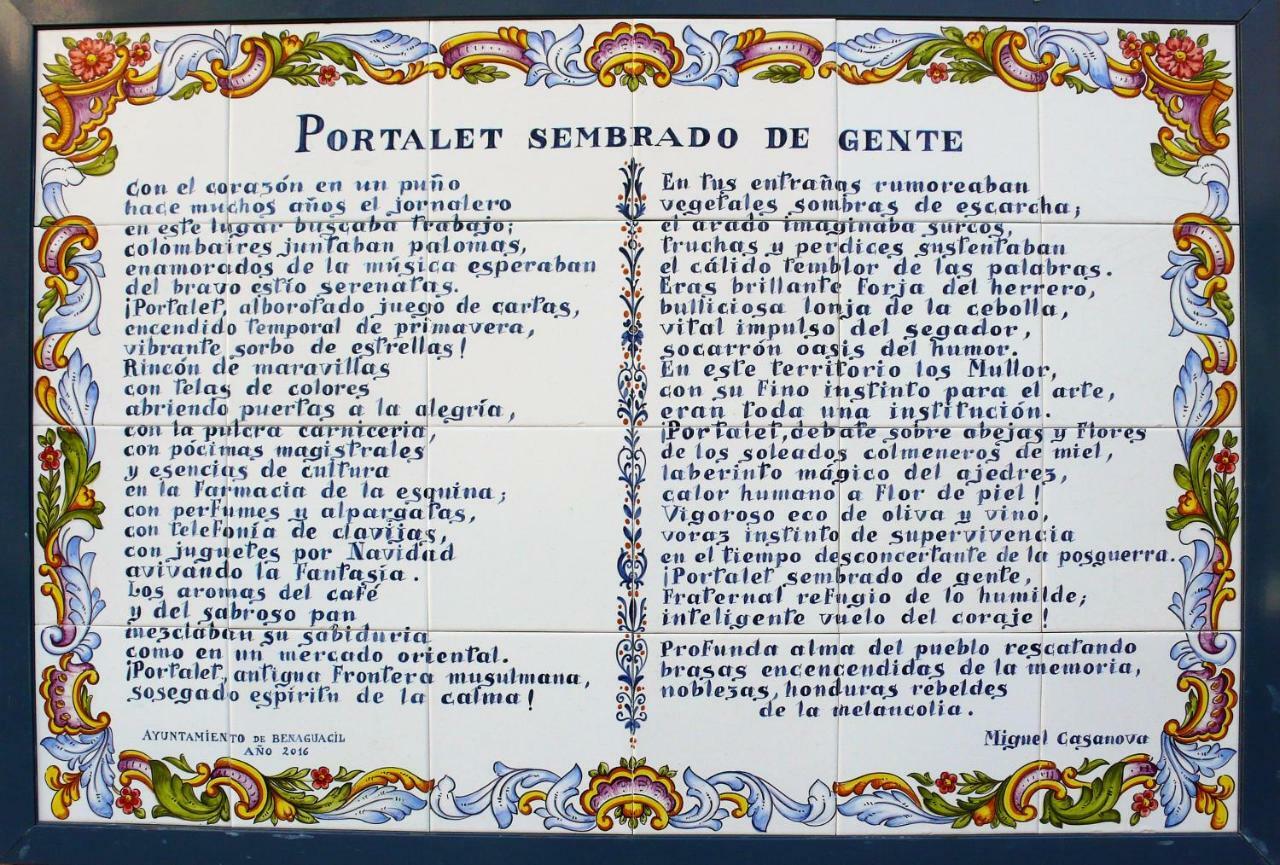 PORTALET SEMBRADO DE GENTE
Con el corazón en un puño
hace muchos años el jornalero
en este lugar buscaba trabajo;
colombaires juntaban palomas,
enamorados de la música esperaban
del bravo estío serenatas.
¡Portalet, alborotado juego de cartas,
encendido temporal de primavera,
vibrante sorbo de estrellas!
Rincón de maravillas
con telas de colores
abriendo puertas a la alegría,
con la pulcra carniceria,
con pócimas magistrales
y esencias de cultura
en la Farmacia de la esquina;
con perfumes y alpargatas,
con telefonía de clavijas,
con juguetes por Navidad
avivando la Fantasía.
Los aromas del café
y del sabroso pan
mezclaban su sabiduria
como en un mercado oriental.
¡Portalet, antigua Frontera musulmana,
sosegado espíritu de la calma!
AYUNTAMIENTO DE BENAGUACIL
AÑO 2016
En tus entrañas rumoreaban
vegetales sombras de escarcha;
el arado imaginaba surcos,
truchas y perdices sustentaban
el cálido temblor de las palabras.
Eras brillante Forja del herrero,
bulliciosa lonja de la cebolla,
vital impulso del segador,
socarrón oasis del humor.
En este territorio los Mullor,
con su Fino instinto para el arte,
eran toda una institución.
¡Portalet, debate sobre abejas y Flores
de los soleados colmeneros de miel,
laberinto mágico del ajedrez,
calor humano a Flor de piel!
Vigoroso eco de oliva y vino,
voraz instinto de supervivencia
en el tiempo desconcertante de la posguerra.
¡Portalet sembrado de gente,
Fraternal refugio de lo humilde;
inteligente vuelo del coraje!
Profunda alma del pueblo rescatando
brasas encencendidas de la memoria,
noblezas, honduras rebeldes
de la melancolia.
Miguel Casanova